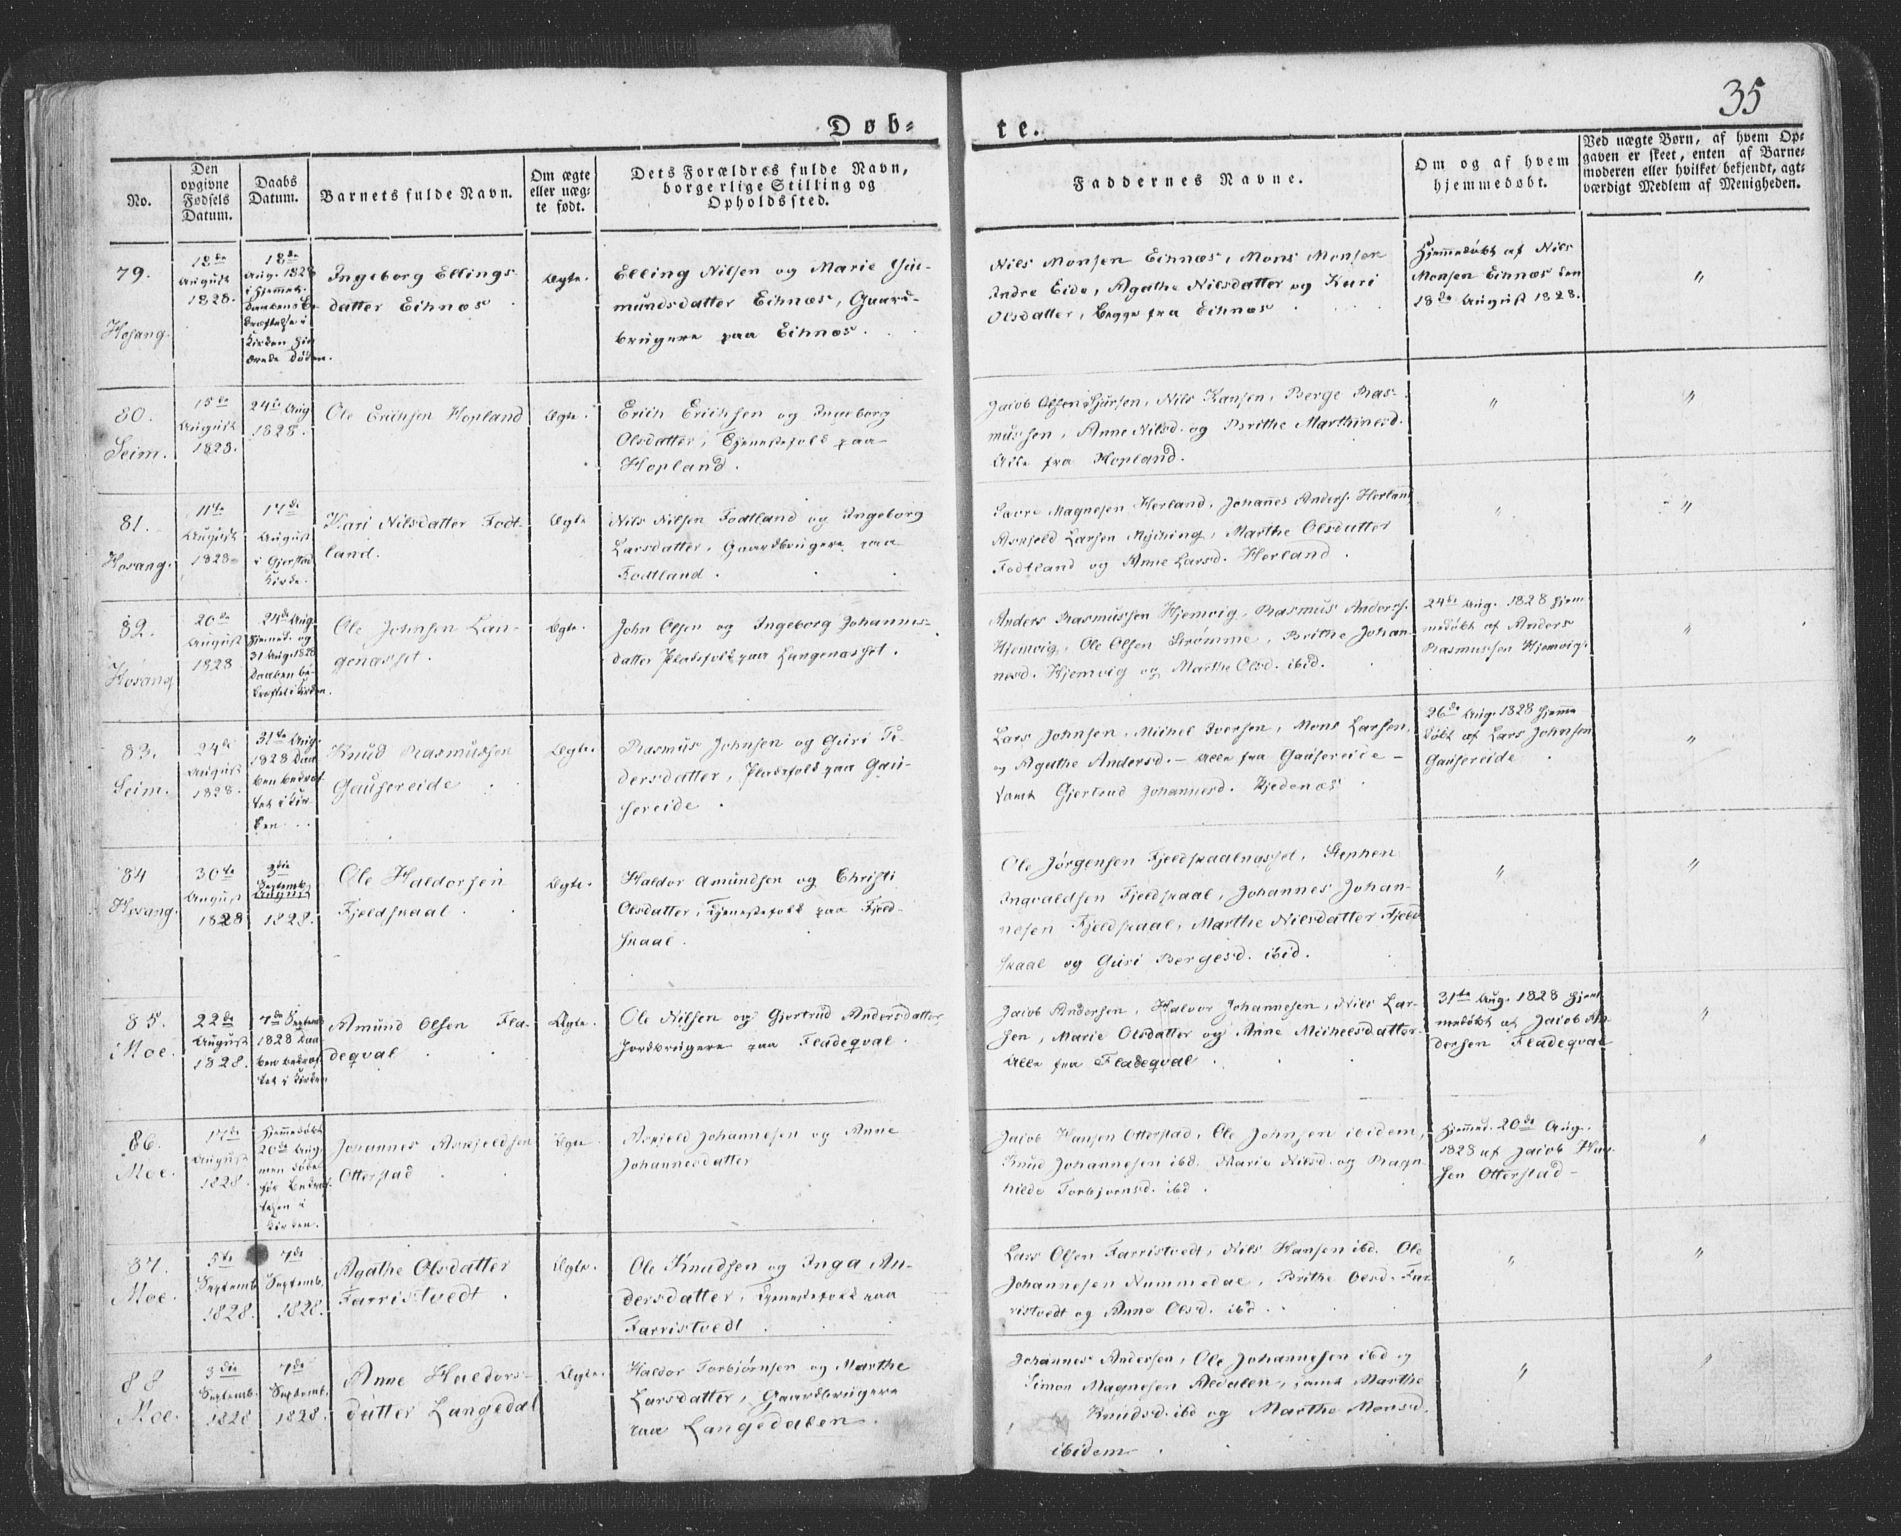 35
Døb-
te.
No.
Den
opgivne
Fødsels
Datum.
Daabs
Datum.
Barnets fulde Navn.
Om ægte
eller uæg-
te født.
Dets Forældres fulde Navn,
borgerlige Stilling og
Opholdssted.
Faddernes Navne.
Om og af hvem
hjemmedøbt.
Ved uægte Børn, af hvem Op-
gaven er skeet, enten af Barne-
moderen eller hvilket bekjendt, agt-
værdigt Medlem af Menigheden.
79.
Hosang.
18de
August
1828.
18de
Aug. 1828
i Hjemmet.
Ingeborg Ellings
datter Eihnæs
Ægte.
Elling Nilsen og Marie
mundsdatter Eihnæs, Gaard-
brugere paa Eihnæs.
Nils Monsen Eihnæs, Mons Monsen
Indre Eide, Agathe Nilsdatter og Kari
Olsdatter, begge fra Eihnæs
Hjemmedøbt af Nils
Monsen Eihnæs den
18de August 1828.
"
80.
Seim.
15de
August
1828.
24de Aug
1828.
Ole Erichsen Hopland
Ægte.
Erich Erichsen og Ingeborg
Olsdatter, Tjenestefolk paa
Hopland.
Jacob Olsen Nils Hansen, Berge Ras-
mussen, Anne Nilsd. og Brithe Marthinesd.
Alle fra Hopland.
"
"
81.
Hosang.
11te
August
1828.
17de
August
i Gjerstad
Kirke.
Kari Nilsdatter Fodt-
land.
Ægte
Nils Nilsen Fodtland og Ingeborg
Larsdatter, Gaardbrugere paa
Fodtland.
Magnesen Herland, Johannes Anders. Herland
Askjeld Larsen Marthe Olsdatter
Fodtland og Anne Larsd. Herland.
"
"
82.
Hosang
20de
August
1828
24de Aug.
hjemmed. og
31 Aug. 1828
Daaben be-
kræftet i Kirken.
Ole Johnsen Lan-
genæsset.
Ægte.
John Olsen og Ingeborg Johannes-
datter Pladsfolk paa Langenæsset.
Anders Rasmussen Hjemvig, Rasmus Anders.
Hjemvig, Ole Olsen Strømme, Brithe Johan-
nesd. Hjemvig og Marthe Olsd. ibid.
24de Aug. 1828 hjem
medøbt af Anders
Rasmussen Hjemvig.
"
83.
Seim.
24de
August
1828.
31te Aug.
1828 Daa
ben bekræf
tet i Kir
ken
Knud Rasmussen
Gausereide
Ægte.
Rasmus Johnsen og Guri Pe-
dersdatter, Pladsfolk paa Gau-
sereide.
Lars Johnsen, Michel Iversen, Mons Larsen,
og Agathe Andersd. - Alle fra Gausereide -
samt Gjertrud Johannesd.
26de Aug. 1828 hjemme
døbt af Lars Johnsen
Gausereide
"
84
Hosang.
30te
August
1828
3die
Septemb.
August
1828.
Ole Haldorsen
Fjeldskaal
Ægte.
Haldor Amundsen og Christi
Olsdatter, Tjenestefolk paa Fjeld-
skaal.
Ole Jørgensen Fjeldskaalnæsset, Stephen
Ingvaldsen Fjeldskaal, Johannes Johan-
nesen Fjeldskaal, Marthe Nilsdatter Fjeld-
skaal og Guri Bergesd. ibid.
"
"
85.
Moe.
22de
August
1828.
7de Septemb
1828 Daa
ben bekræf
tet i Kirken
Amund Olsen Fla-
deqval
Ægte.
Ole Nilsen og Gjertrud Andersdatter
Jordbrugere paa Fladeqval.
Jacob Andersen, Halvor Johannesen, Nils Lar-
sen, Marie Olsdatter og Anne Michelsdatter
Alle fra Fladeqval
31te Aug. 1828 hjem
medøbt af Jacob An
dersen Fladeqval
"
86.
Moe.
17de
August
1828.
Hjemmedøbt
20de Aug.
men døde
før Bekræf-
telsen i
Kirken.
Johannes Askjeldsen
Otterstad
Ægte.
Askjeld Johannesen og Anne
Johannesdatter
Jacob Hansen Otterstad, Ole Johnsen ibidem,
Knud Johannesen ibd. Marie Nilsd. og Ragn-
hilde Torbjornsd. ibd.
Hjemmed. 20de Aug.
1828 af Jacob Han-
sen Otterstad -
"
87.
Moe.
5te
Septemb.
1828.
7de
Septemb.
1828.
Agathe Olsdatter
Farristvedt.
Ægte.
Ole Knudsen og Inga An-
dersdatter, Tjenestefolk paa
Farristvedt
Lars Olsen Farristvedt, Nils Hansen ibd. Ole
Johannesen Nummedal, Brithe Olsd. Far-
ristvedt og Anne Olsd. ibd.
"
"
88
Moe.
3die
Septemb.
1828
7de
Septemb.
1828.
Anne Haldors-
datter Langedal
Ægte.
Haldor Torbjørnsen og Marthe
Larsdatter, Gaardbrugere
paa Langedalen.
Johannes Andersen, Ole Johannesen ibd og
Simon Magnesen Aldalen, samt Marthe
Knudsd. ibd og Marthe Monsd.
ibidem
"
"